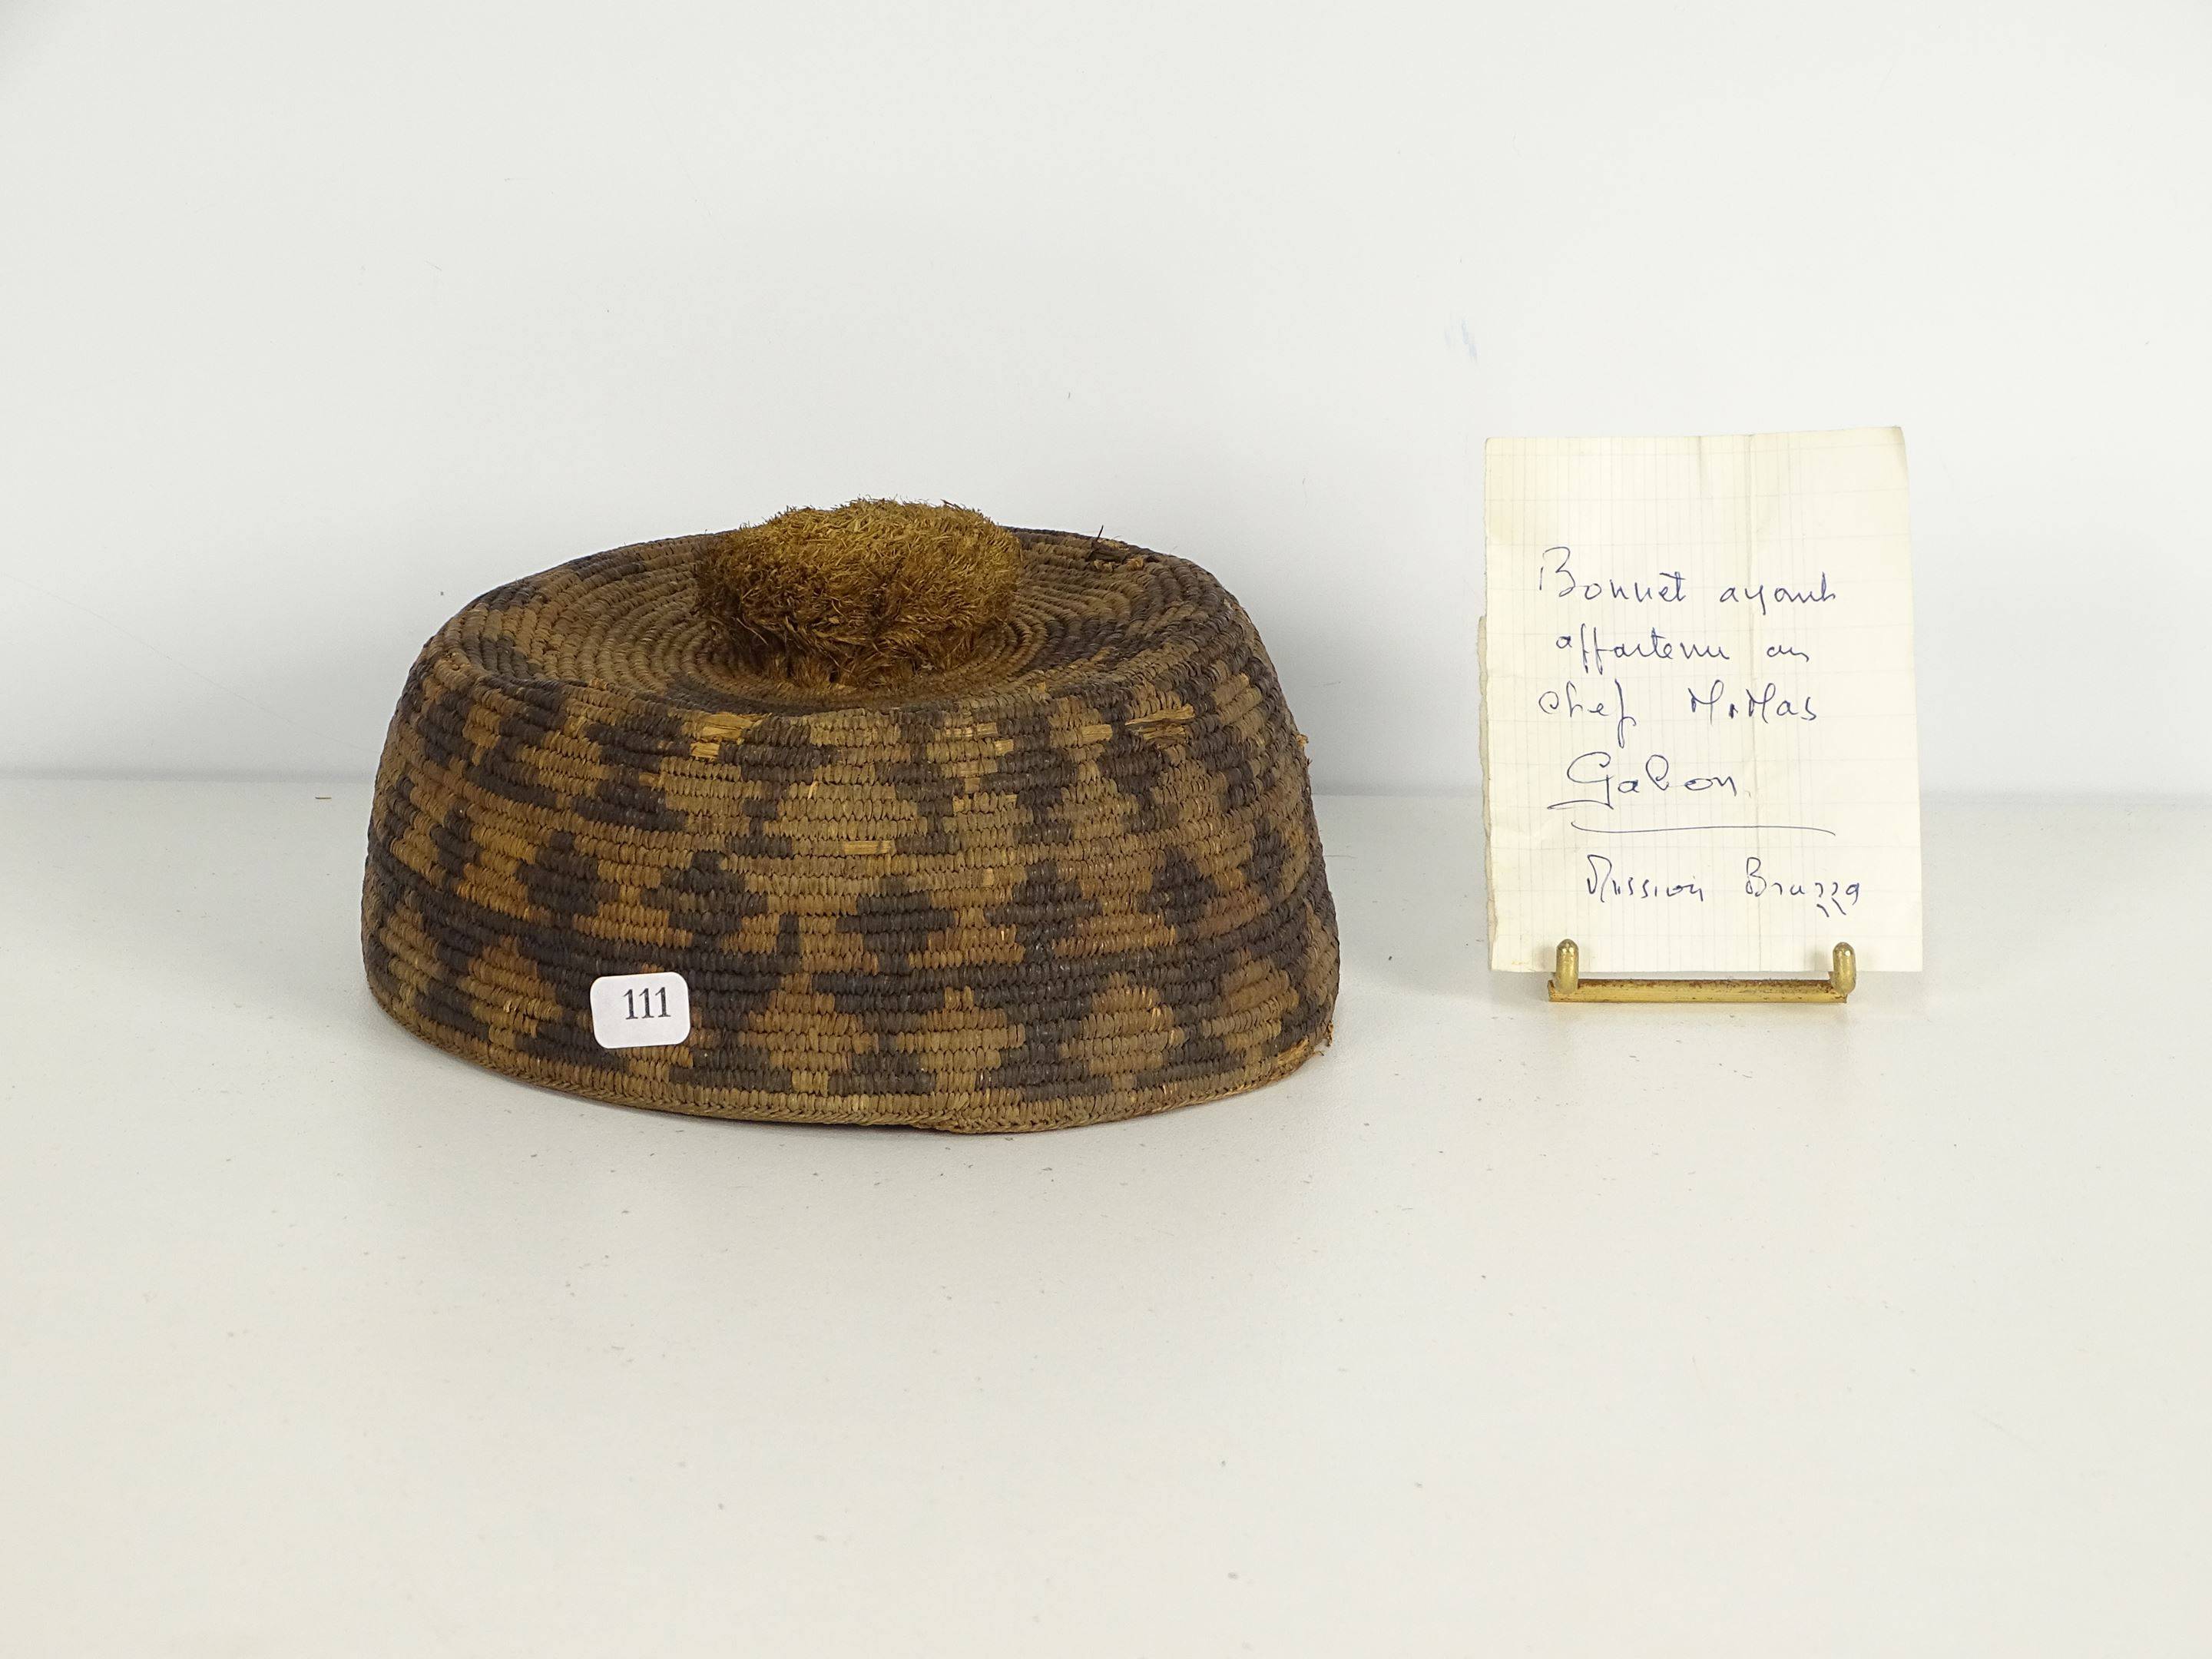 111
Bonnet ayant
appartenu au
chef
Gabon.
Mission Brazza